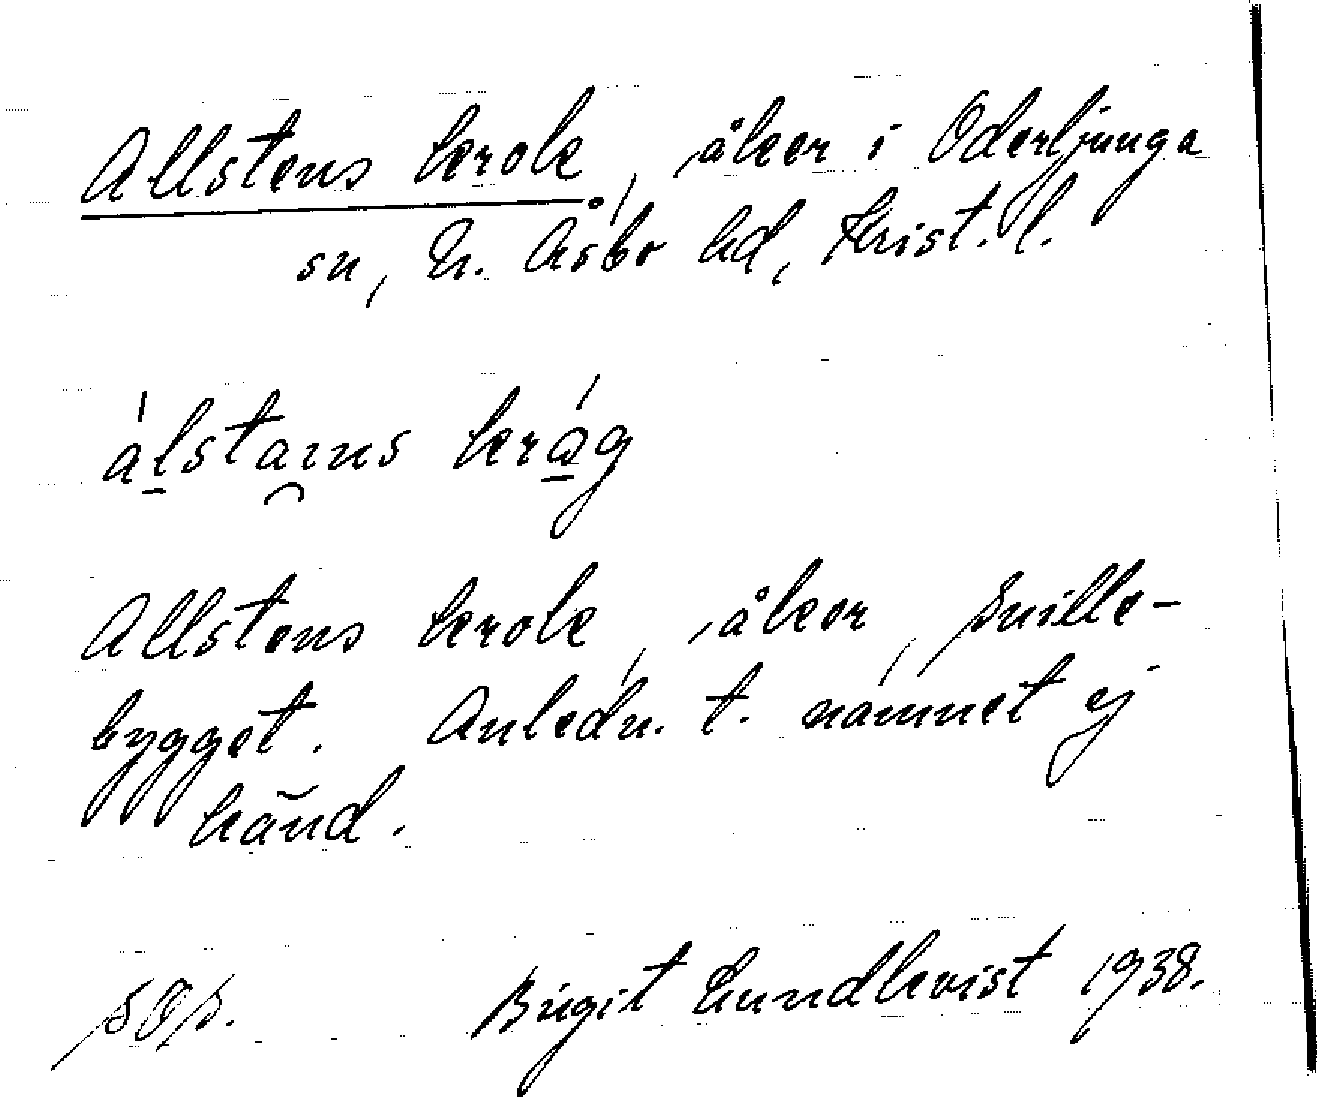 Allstens krok, åker i Oderljunga
sn, N. Åsbo hd, Krist. l.
álstaɪns krǻg
Allstens krok, åker, Snille-
bygget. Anledn. t. namnet ej
känd.
Birgit Lundkvist 1938.